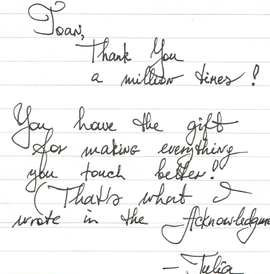 Joan,
Thank You
a million times!
You have the gift
for making everything
you touch better!
(That's what I
wrote in the Acknowledgme
-Julia